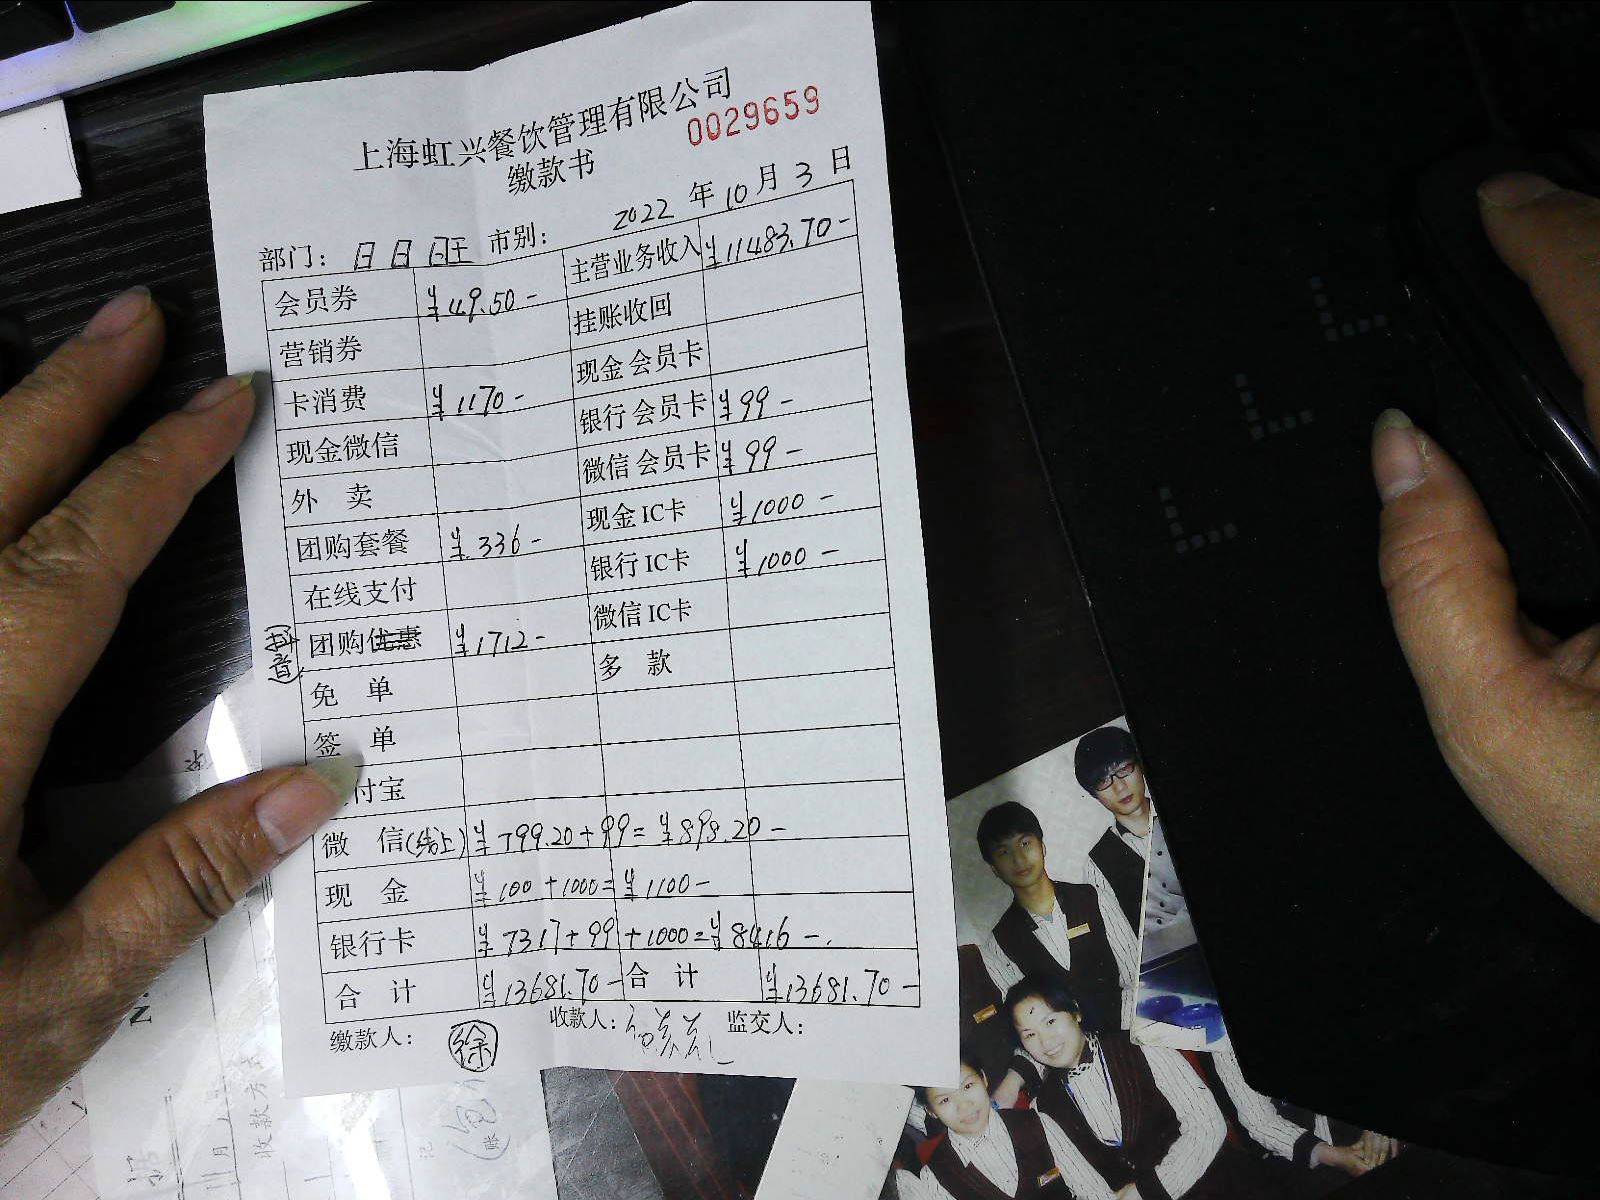 上海虹兴餐饮管理有限公司
0029659
缴款书
2022 年 10 月 3 日
部门: 日日旺 市别:
会员券 ¥49.50- 主营业务收入 ¥11483.70-
营销券 挂账收回
卡消费 ¥1170- 现金会员卡
现金微信 银行会员卡 ¥99-
外 卖 微信会员卡 ¥99-
团购套餐 ¥336- 现金IC卡 ¥1000-
在线支付 银行IC卡 ¥1000-
抖音 团购 ¥1712- 微信IC卡
免 单 多 款
签 单
付宝
微 信(线上) ¥799.20+99=¥898.20-
现 金 ¥100+1000=¥1100-
银行卡 ¥7317+99+1000=¥8416-
合 计 ¥13681.70- 合 计 ¥13681.70-
缴款人: 徐 收款人: 监交人:
收款方式